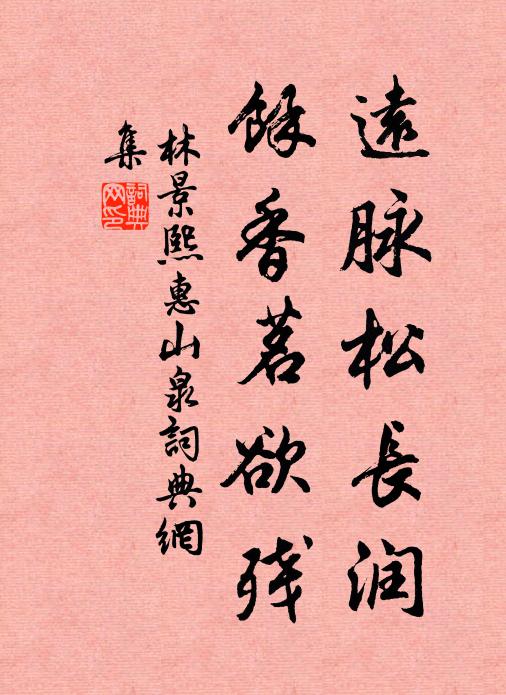 遠脉松長润
餘香茗欲残
林景熙惠山泉詞典網
集
詞典网印